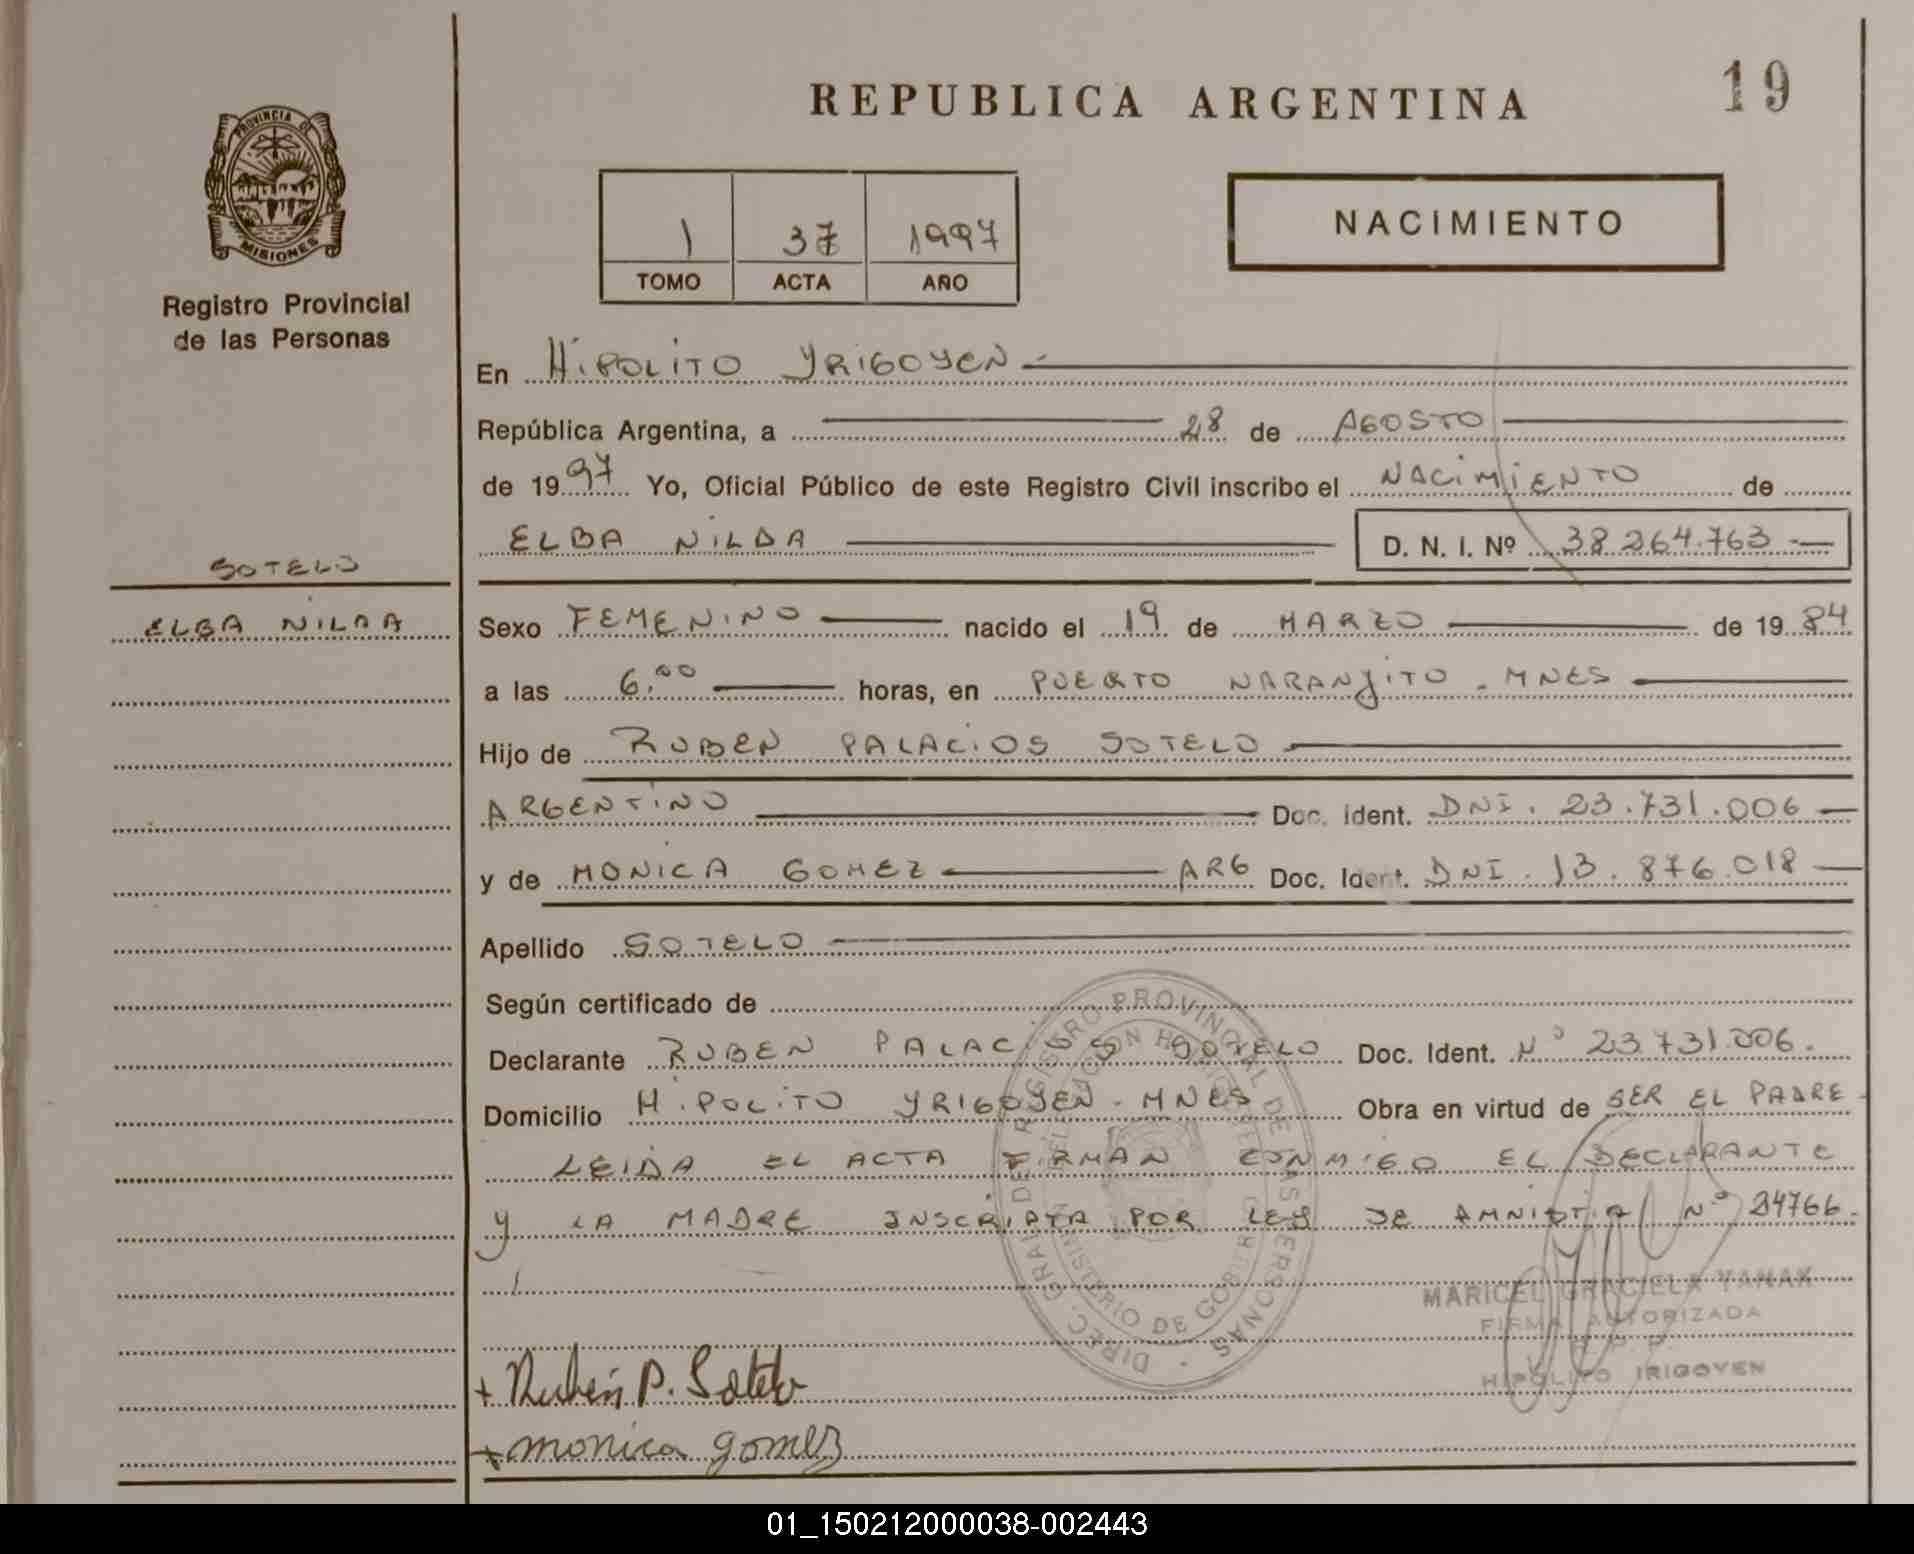 REPUBLICA ARGENTINA
19
PROVINCIA DE
MISIONES
Registro Provincial
de las Personas
1 37 1997
TOMO ACTA AÑO
NACIMIENTO
En HIPOLITO YRIGOYEN
República Argentina, a 28 de AGOSTO
de 1997 Yo, Oficial Público de este Registro Civil inscribo el NACIMIENTO de
ELBA NILDA D. N. I. Nº 38 264.763
SOTELO
ELBA NILDA
Sexo FEMENINO nacido el 19 de MARZO de 1984
a las 6.00 horas, en PUERTO NARANJITO - MNES
Hijo de RUBEN PALACIOS SOTELO
ARGENTINO Doc. Ident. DNI. 23.731.006
y de MONICA GOMEZ ARG Doc. Ident. DNI. 13.876.018
Apellido SOTELO
Según certificado de
Declarante RUBEN PALACIOS SOTELO Doc. Ident. Nº 23.731.006.
Domicilio HIPOLITO YRIGOYEN - MNES Obra en virtud de SER EL PADRE
LEIDA EL ACTA FIRMAN CONMIGO EL DECLARANTE
Y LA MADRE INSCRIPTA POR LEY DE AMNISTIA Nº 24766.
DIREC. GRAL. DE REGISTRO PROVINCIAL DE LAS PERSONAS
MINISTERIO DE GOBIERNO
MARICEL GRACIELA YANAK
FIRMA AUTORIZADA
HIPOLITO IRIGOYEN
+ Rubén P. Sotelo
+ monica gomez
01_150212000038-002443